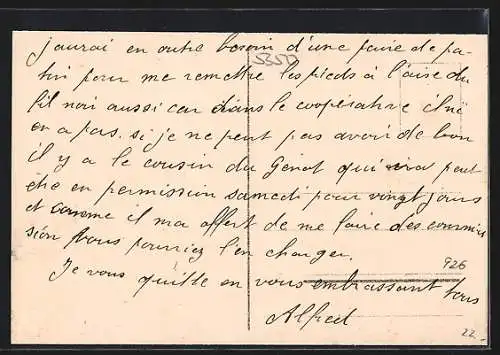 jaurai en outre besoin d'une paire de pa-
5350
tin pour me remettre les pieds à l'aise du
fil noir aussi car dans le coopérative il ni
en a pas. si je ne peut pas avoir de bon
il y a le cousin du Génot qui ira peut
être en permission samedi pour vingt jours
et comme il ma offert de me faire des commis
sion vous pourriez l'en charger.
926
Je vous quitte en vous embrassant tous
Alfred
22.-